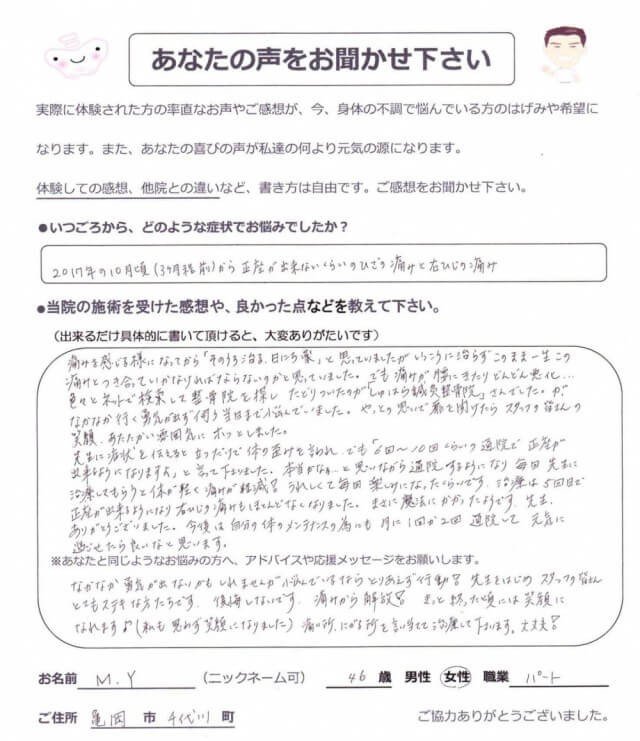 あなたの声をお聞かせ下さい
実際に体験された方の率直なお声やご感想が、今、身体の不調で悩んでいる方のはげみや希望に
なります。また、あなたの喜びの声が私達の何より元気の源になります。
体験しての感想、他院との違いなど、書き方は自由です。ご感想をお聞かせ下さい。
●いつごろから、どのような症状でお悩みでしたか？
2017年の10月頃(3ヶ月程前)から正座が出来ないくらいのひざの痛みと右ひじの痛み
●当院の施術を受けた感想や、良かった点などを教えて下さい。
（出来るだけ具体的に書いて頂けると、大変ありがたいです）
痛みを感じる様になってから「そのうち治る、日にち薬」と思っていましたがいっこうに治らずこのまま一生この
痛みとつき合っていかなければならないのかと思っていました。でも痛みが腰にきたりどんどん悪化…
色々とネットで検索して整骨院を探したどりついたのが「しゅはら鍼灸整骨院」さんでした。が、
なかなか行く勇気が出ず伺う当日まで悩んでいました。やっとの思いで扉を開けたらスタッフの皆さんの
笑顔、あたたかい雰囲気にホッとしました。
先生に症状を伝えると立っただけで体の歪みを言われ、でも「6回〜10回くらいの通院で正座が
出来るようになりますよ」と言って下さいました。本当かなぁ…と思いながら通院するようになり毎回先生に
治療してもらうと体が軽く痛みが軽減! うれしくて毎回楽しみになったくらいです。治療は5回目で
正座が出来るようになり右ひじの痛みもほとんどなくなりました。まさに魔法にかかったようです。先生、
ありがとうございました。今後は自分の体のメンテナンスの為にも月に1回か2回通院して元気に
過ごせたら良いなと思います。
※あなたと同じようなお悩みの方へ、アドバイスや応援メッセージをお願いします。
なかなか勇気が出ないかもしれませんが悩んでいるならとりあえず行動! 先生をはじめスタッフの皆さん
とてもステキな方たちです。後悔しないです。痛みから解放! きっと終った頃には笑顔に
なれます♪(私も思わず笑顔になりました) 痛い所、にがる所を言い当てて治療して下さいます。大丈夫!
お名前 M.Y （ニックネーム可） 46 歳 男性 女性 職業 パート
ご住所 亀岡 市 千代川 町 ご協力ありがとうございました。